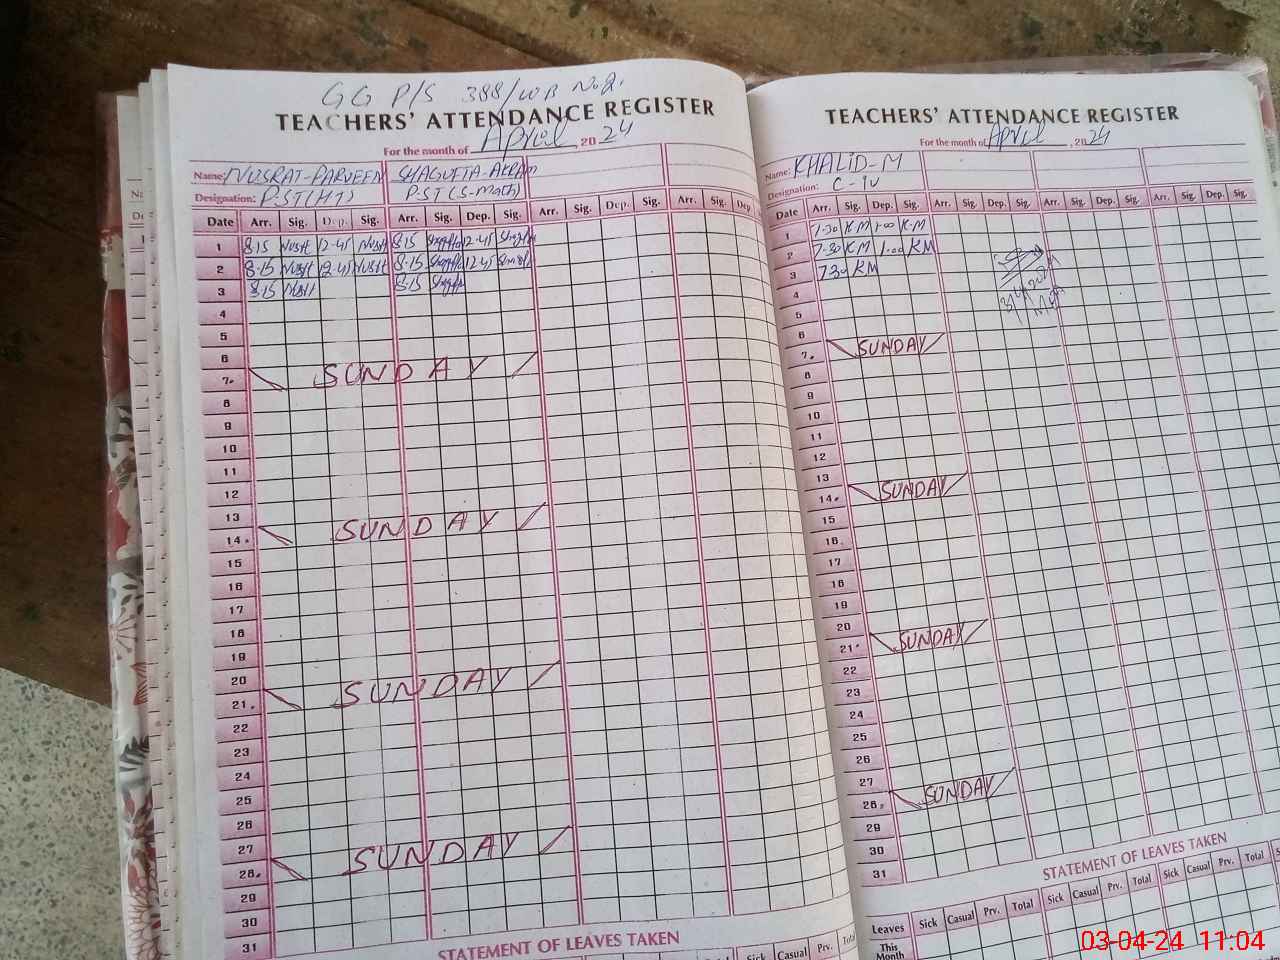 GG P/S 388/WB No.2.
TEACHERS' ATTENDANCE REGISTER
For the month of April, 2024
Name: NUSRAT-PARVEEN SHAGUFTA-AKRAM
Designation: P.ST(HT) P.ST(S-Math)
Date Arr. Sig. Dep. Sig. Arr. Sig. Dep. Sig. Arr. Sig. Dep. Sig. Arr. Sig. Dep
1 8.15 Nusrt 12.45 Nusrt 8.15 12.45
2 8.15 Nusrt 12.45 Nusrt 8.15 12.45
3 8.15 Nusrt 8.15
4
5
6
7. SUNDAY
8
9
10
11
12
13
14. SUNDAY
15
16
17
18
19
20
21. SUNDAY
22
23
24
25
26
27
28. SUNDAY
29
30
31
STATEMENT OF LEAVES TAKEN
Sick Casual Prv. Total
TEACHERS' ATTENDANCE REGISTER
For the month of April, 2024
Name: KHALID-M
Designation: C-IV
Date Arr. Sig. Dep. Sig. Arr. Sig. Dep. Sig. Arr. Sig. Dep. Sig. Arr. Sig. Dep. Sig.
1 7.30 KM 1.00 KM
2 7.30 KM 1.00 KM
3 7.30 KM
4
5
6
7. SUNDAY
8
9
10
11
12
13
14. SUNDAY
15
16
17
18
19
20
21. SUNDAY
22
23
24
25
26
27
28. SUNDAY
29
30
31
STATEMENT OF LEAVES TAKEN
Leaves Sick Casual Prv. Total Sick Casual Prv. Total Sick Casual Prv. Total
This Month
03-04-24 11:04